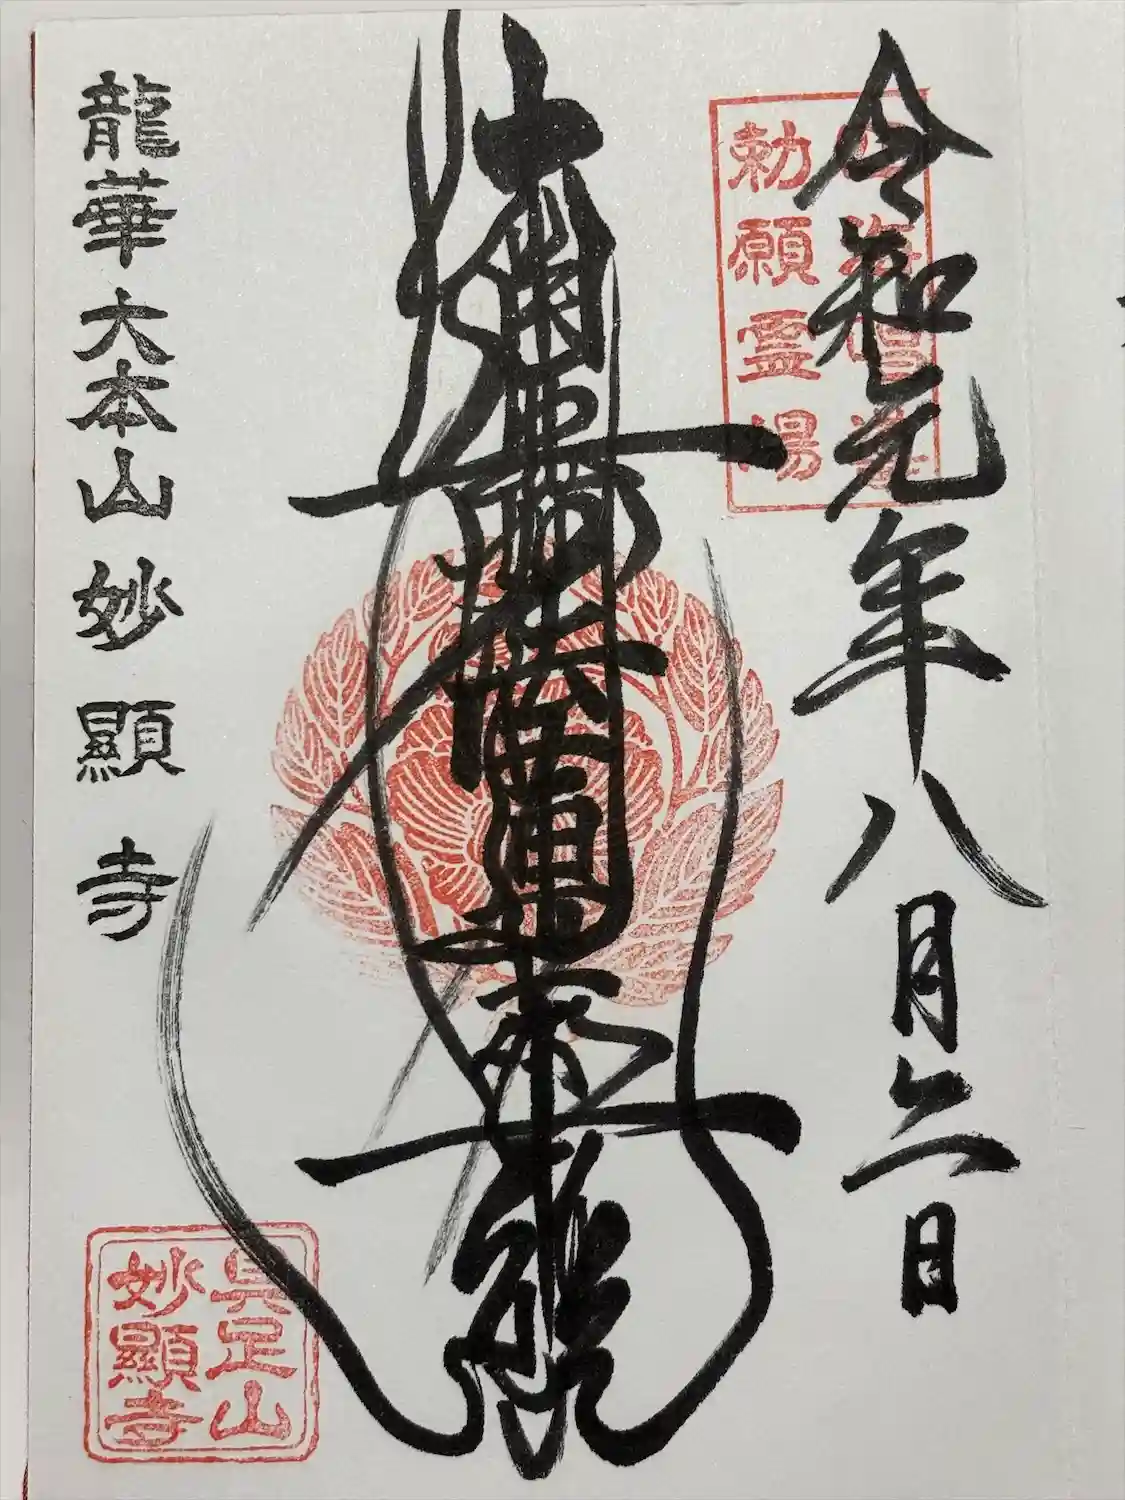 令和元年八月二日
勅願霊場
南無妙法蓮華経
龍華 大本山 妙顯寺
具足山
妙顯寺